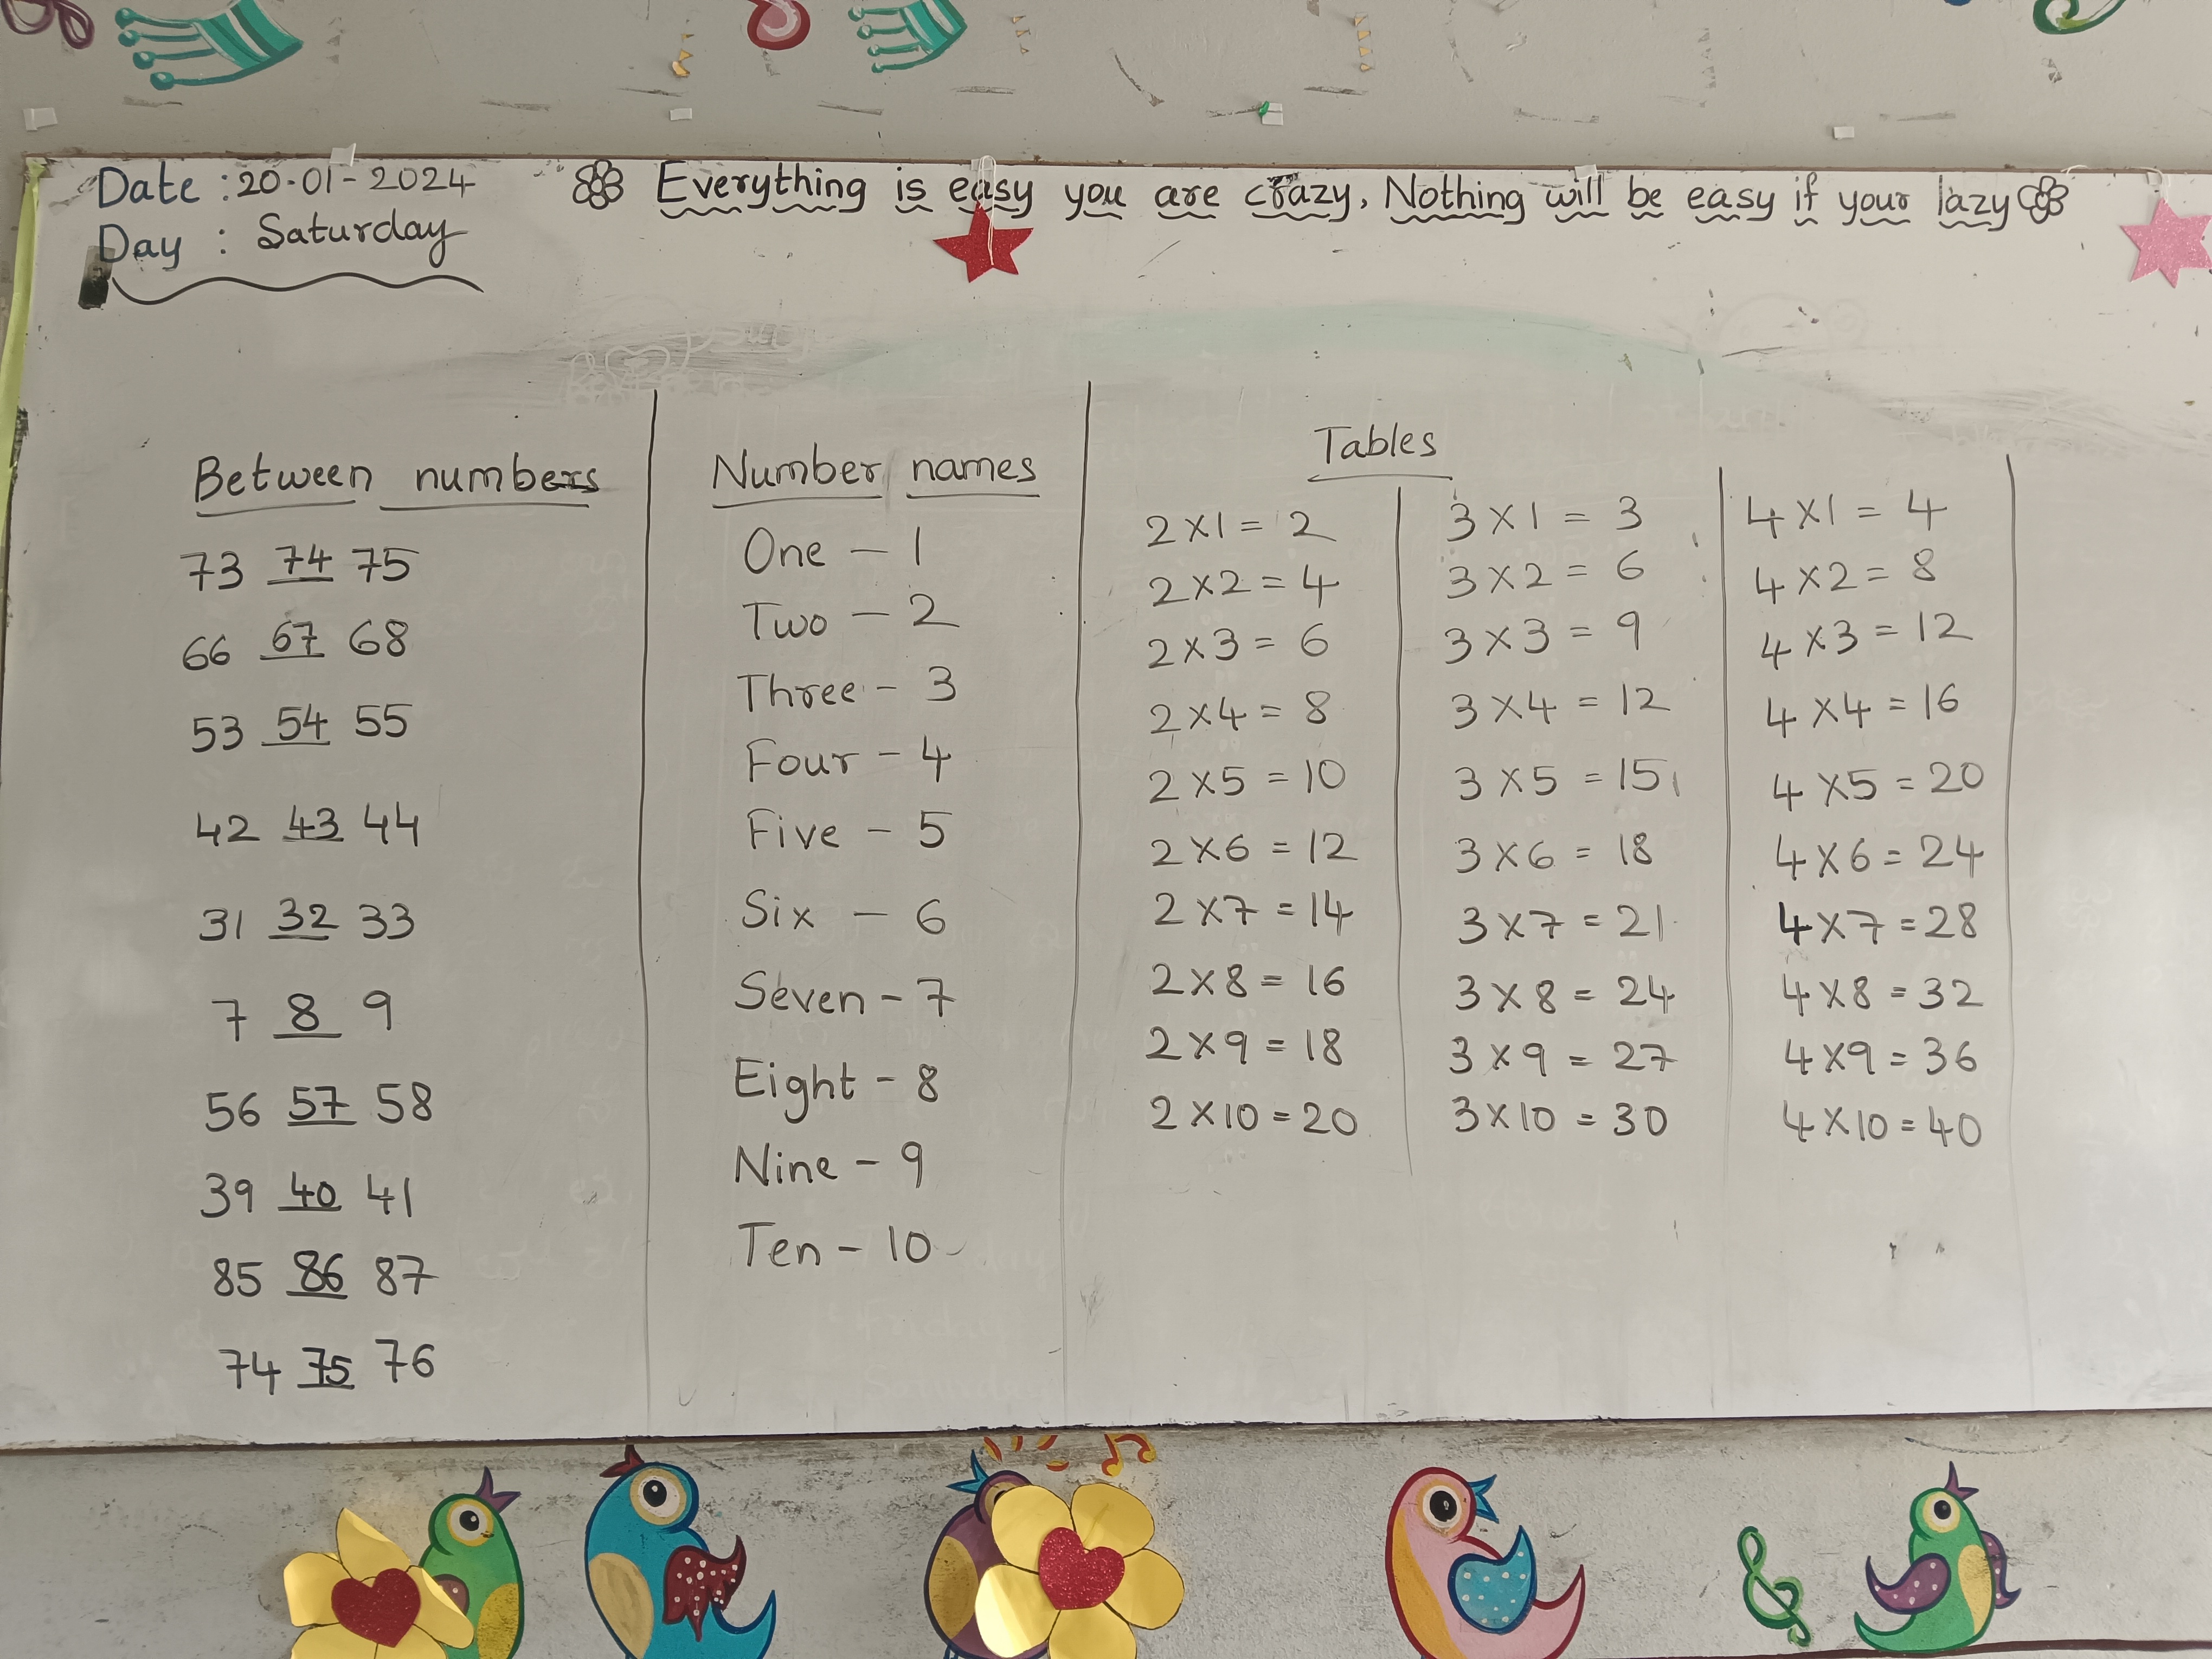 Date : 20-01-2024
Day : Saturday
Everything is easy you are crazy, Nothing will be easy if your lazy
Between numbers
73 74 75
66 67 68
53 54 55
42 43 44
31 32 33
7 8 9
56 57 58
39 40 41
85 86 87
74 75 76
Number names
One - 1
Two - 2
Three - 3
Four - 4
Five - 5
Six - 6
Seven - 7
Eight - 8
Nine - 9
Ten - 10
Tables
2 x 1 = 2
2 x 2 = 4
2 x 3 = 6
2 x 4 = 8
2 x 5 = 10
2 x 6 = 12
2 x 7 = 14
2 x 8 = 16
2 x 9 = 18
2 x 10 = 20
3 x 1 = 3
3 x 2 = 6
3 x 3 = 9
3 x 4 = 12
3 x 5 = 15
3 x 6 = 18
3 x 7 = 21
3 x 8 = 24
3 x 9 = 27
3 x 10 = 30
4 x 1 = 4
4 x 2 = 8
4 x 3 = 12
4 x 4 = 16
4 x 5 = 20
4 x 6 = 24
4 x 7 = 28
4 x 8 = 32
4 x 9 = 36
4 x 10 = 40